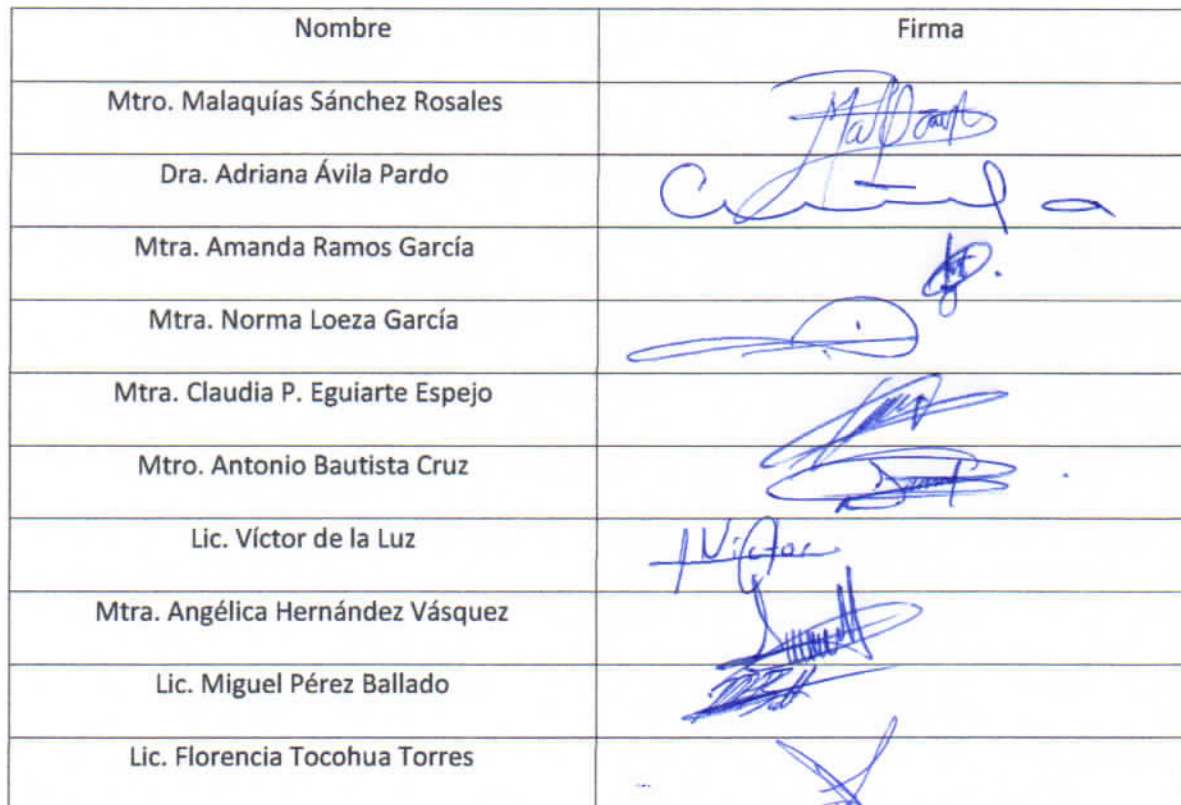 Nombre Firma
Mtro. Malaquías Sánchez Rosales
Dra. Adriana Ávila Pardo
Mtra. Amanda Ramos García
Mtra. Norma Loeza García
Mtra. Claudia P. Eguiarte Espejo
Mtro. Antonio Bautista Cruz
Lic. Víctor de la Luz Victor
Mtra. Angélica Hernández Vásquez
Lic. Miguel Pérez Ballado
Lic. Florencia Tocohua Torres